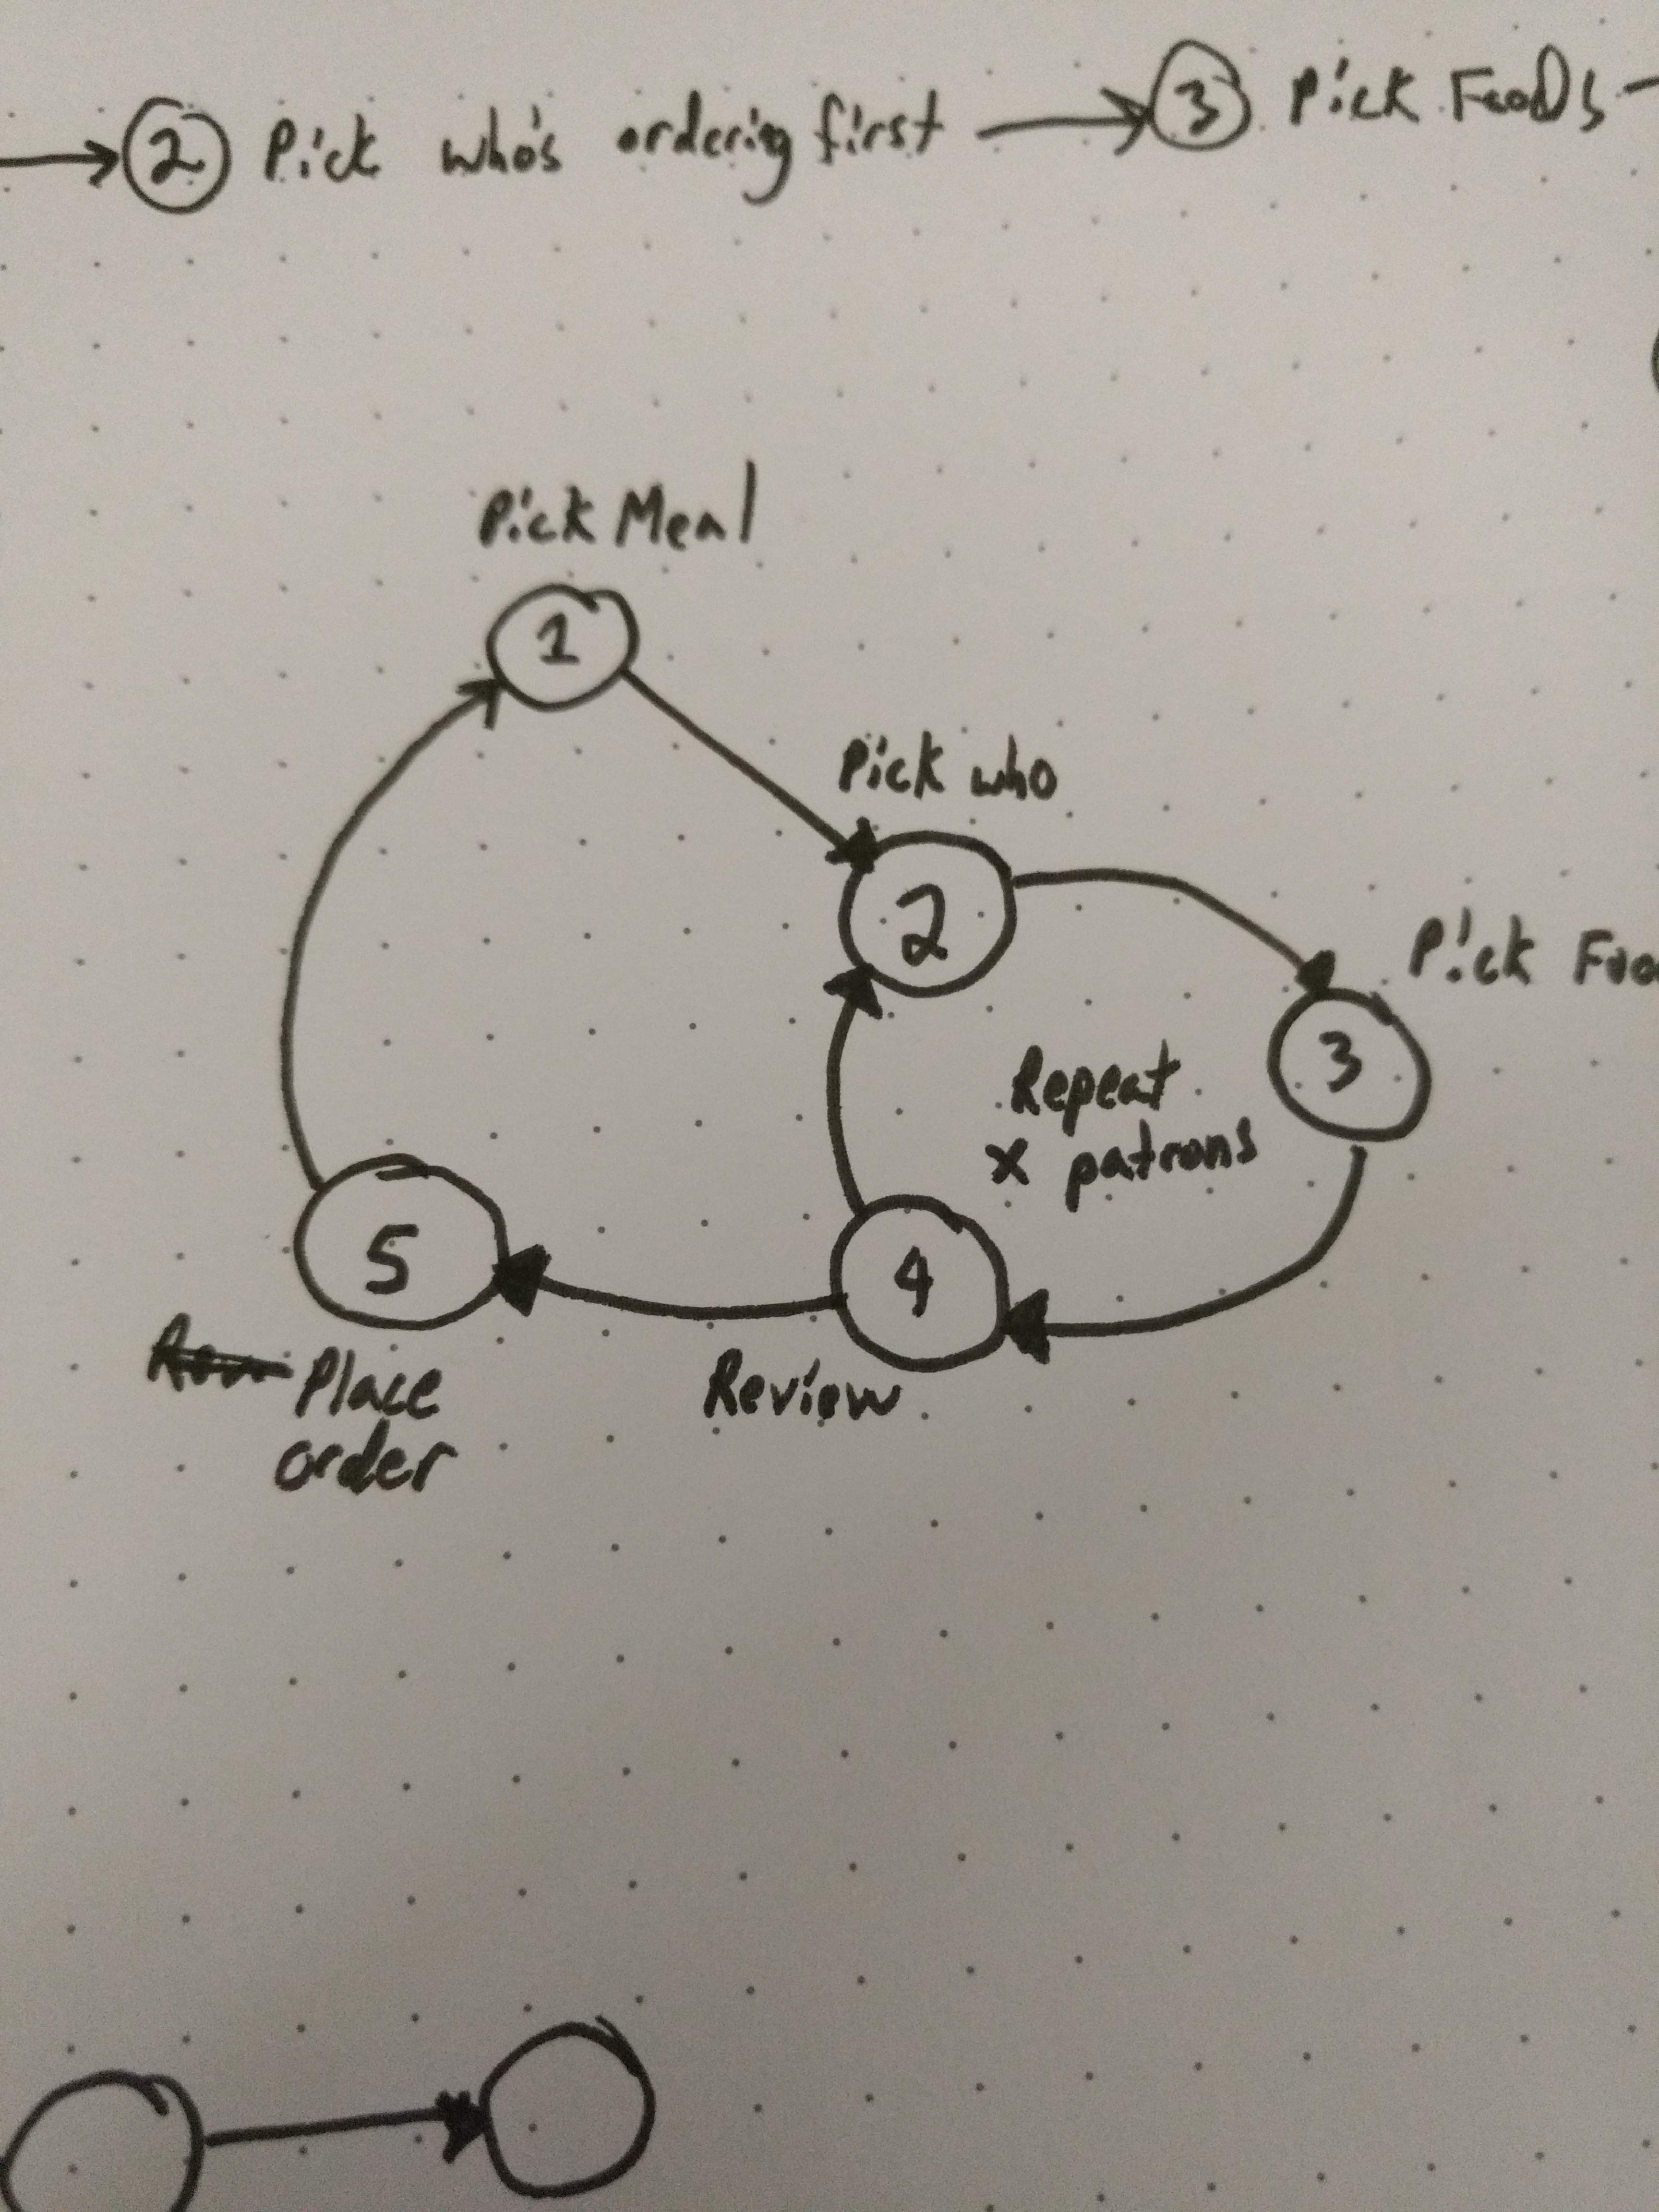 2 Pick who's ordering first 3 Pick Foods
Pick Meal
1
Pick who
2
Pick Foo
3
Repeat
x patrons
5
4
Place
order
Review